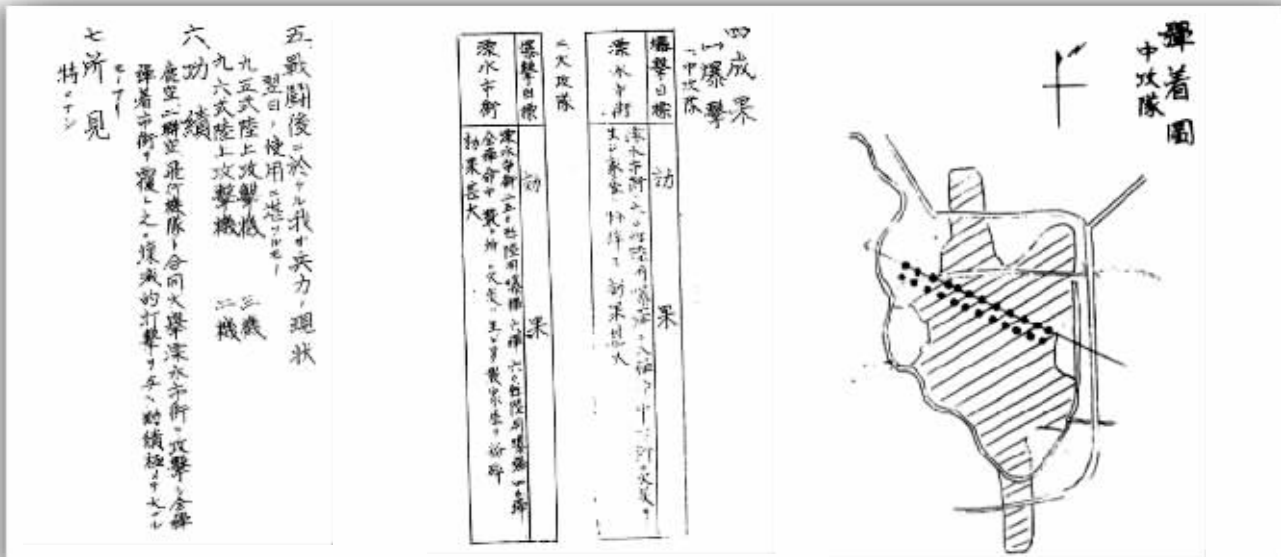 彈着圖
中攻隊
四成果
(一)爆撃
一、中攻隊
爆撃目標 効果
溧水市街
溧水市街ニ六〇瓩陸用爆弾
生ジ家屋ヲ粉砕シ効果甚大
二、大攻隊
爆撃目標 効果
溧水市街
溧水市街ニ二五〇瓩陸用爆弾六弾六〇瓩陸用爆弾
全弾命中數ヶ所ニ火災ヲ生ジ多數家屋ヲ粉砕
効果甚大
五、戰闘後ニ於ケル我ガ兵力ノ現状
翌日ノ使用ニ堪ウルモノ
九五式陸上攻撃機 三機
九六式陸上攻撃機 二機
六、功績
鹿空、二聯空飛行機隊ト合同大擧溧水市街ヲ攻撃シ全弾
弾着市街ヲ覆ヒ之ニ壊滅的打撃ヲ与ヘ功績極メテ大ナル
モノアリ
七所見
特ニナシ